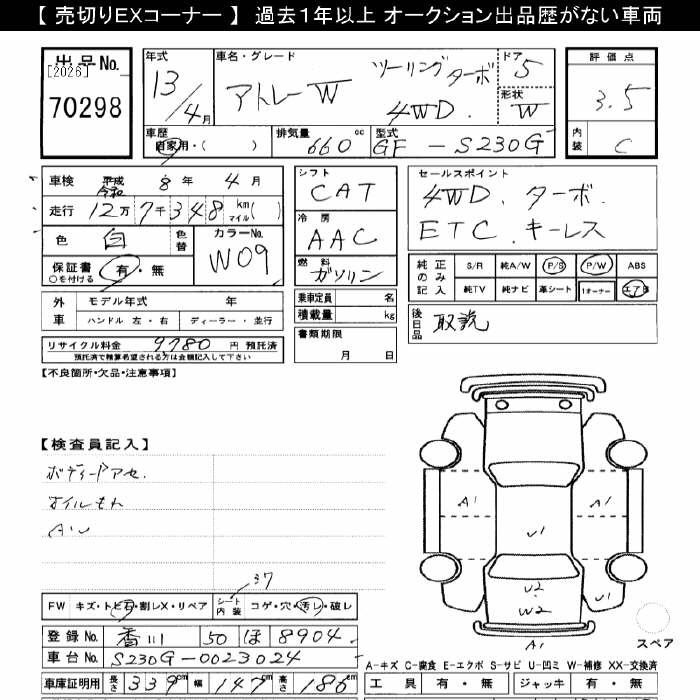 【 売切りEXコーナー 】 過去1年以上 オークション出品歴がない車両
出品No.
[2026]
70298
年式
13/4月
車名・グレード
アトレーW
ツーリングターボ
4WD.
ドア
5
形状
W
評価点
3.5
内装
C
車歴
自家用・( )
排気量
660 cc
型式
GF - S230G
車検 平成 令和 8年 4月
走行 12万7千348 km マイル( )
色 白 色替
カラーNo.
W09
保証書 有・無
○を付ける
シフト
CAT
冷房
AAC
燃料
ガソリン
乗車定員 名
積載量 kg
書類期限
月 日
セールスポイント
4WD. ターボ.
ETC. キーレス
純正のみ記入
S/R 純A/W P/S P/W ABS
純TV 純ナビ 革シート 1オーナー エアB
外車 モデル年式 年
ハンドル 左・右 ディーラー・並行
リサイクル料金 9780 円 預託済
預託済で精算希望される方は金額記入して下さい
後日品
取説
【不良箇所・欠品・注意事項】
【検査員記入】
オイルもれ
A1
A1
U1
U2
W2
U1
A1
スペア
37
FW キズ・トビ石・割レX・リペア
シート内装 コゲ・穴・汚レ・破レ
登録No. 香川 50 ほ 8904
車台No. S230G-0023024
車庫証明用 長さ 339cm 幅 147cm 高さ 186cm
A-キズ C-腐食 E-エクボ S-サビ U-凹ミ W-補修 XX-交換済
工具 有・無 ジャッキ 有・無